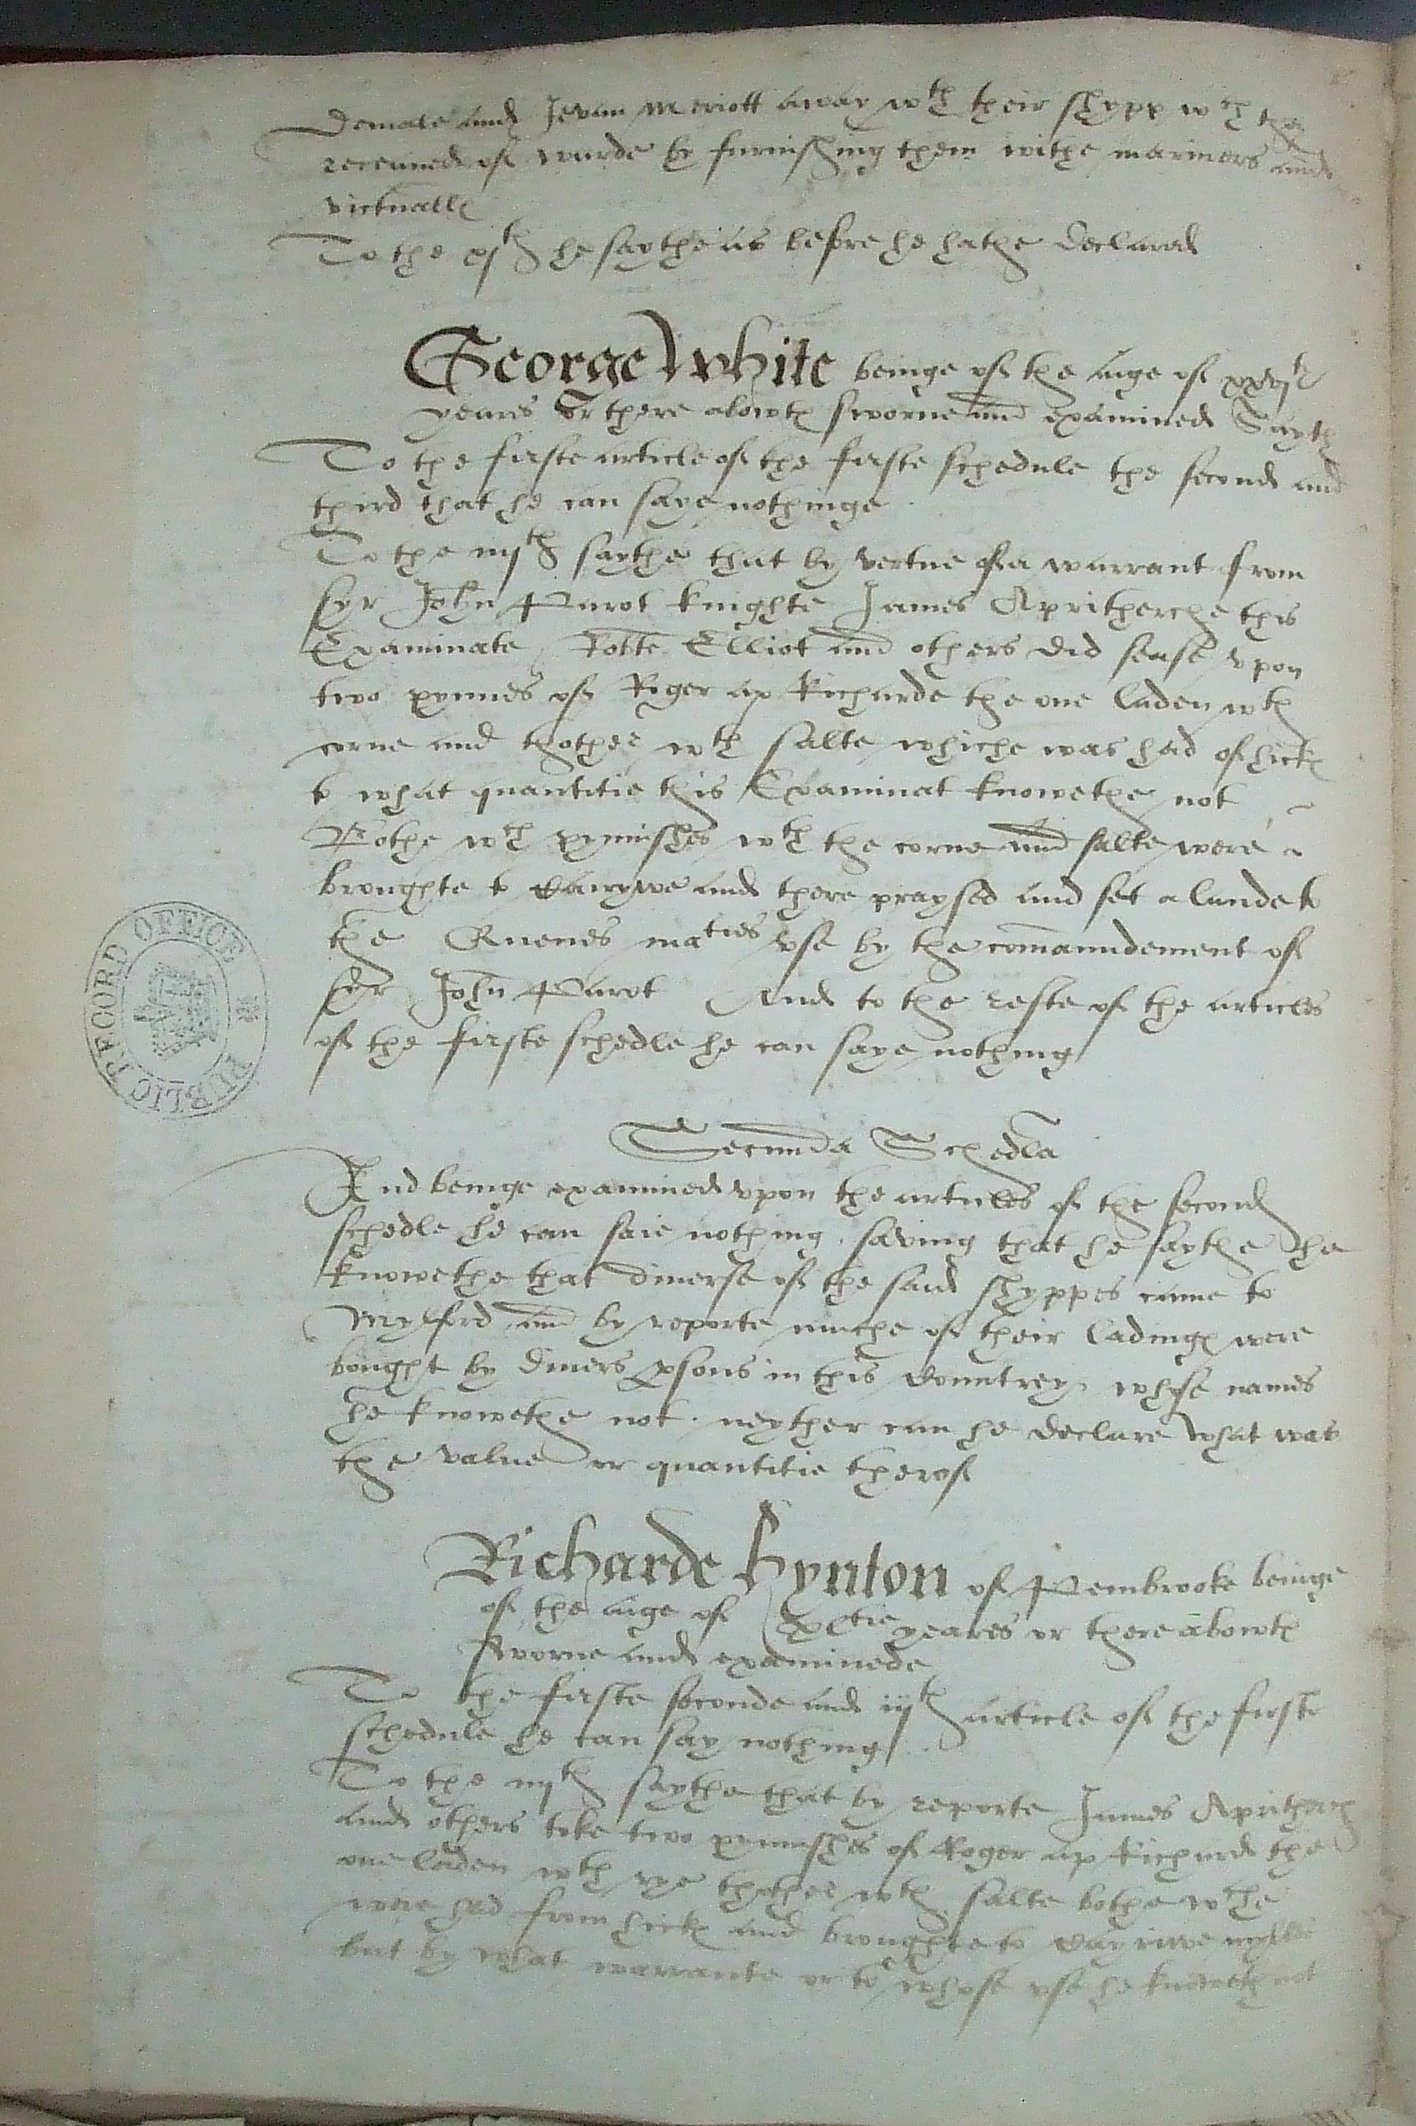 Denale and Jevan Meriott away wth their shypp wth the
receaued of warde by furnishing them withe mariners and
victualls
To the xjth he saythe as before he hathe declared
George White beinge of the aige of xxvjtie
yeares or there abowts sworne and examined Sayth
To the firste article of the firste schedule the second and
third that he can saye nothinge
To the iiijth saythe that by vertue of a warrant from
syr John Parot knighte James Apritherche this
Examinate Robte Elliot and others did sease vpon
two pynnes of Roger ap Richarde the one laden wth
corne and thother wth salte whiche was had of hicks
but what quantitie this Examinat knowethe not
Bothe wch pynnishes wth the corne and salte were
broughte to Carywe and there praysed and set a lande to
the Quenes maties vse by the comaundement of
syr John Parot And to the reste of the articles
of the firste schedle he can saye nothing
PUBLIC RECORD OFFICE
Secunda Schedla
And beinge examined vpon the articles of the second
schedle he can saie nothing saving that he saythe he
knowethe that diuerse of the said shyppes came to
Mylford and by reporte muche of their ladings were
bought by diuers psons in this Countrey whose names
he knowethe not neyther can he declare what was
the value or quantitie therof
Richarde Hynton of Pembrooke beinge
of the aige of xltie yeares or there abowts
sworne and examinede
To the firste seconde and iijth article of the firste
schedule he can say nothing
To the iiijth saythe that by reporte James Apritherch
and others toke two pynnishes of Roger ap Richard the
one laden wth rye thother wth salte bothe wche
were had from hicks and broughte to Carriwe mylls
but by what warrante or to whose vse he knoweth not